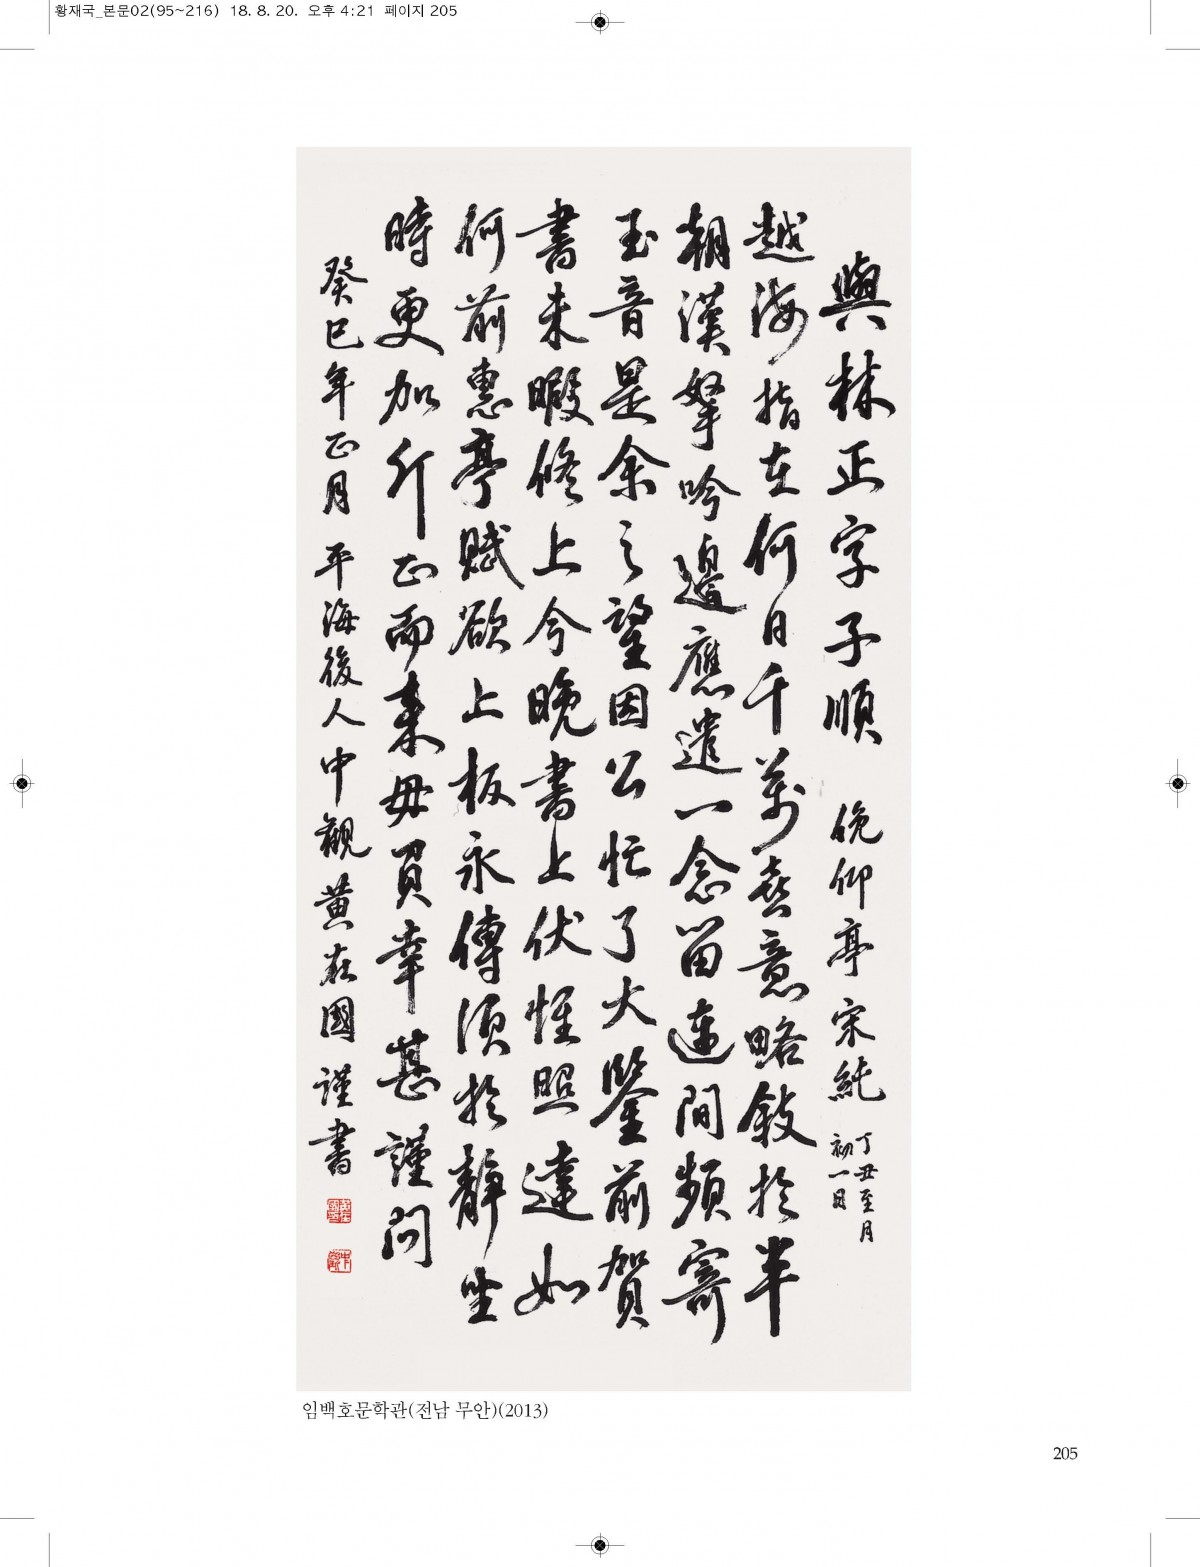 황재국_본문02(95~216) 18. 8. 20. 오후 4:21 페이지 205
與林正字子順 俛仰亭宋純 丁丑至月
初一日
越海指在何日千萬喜意略敍於半
朝漢拏吟邊應遣一念留連間頻寄
玉音是余之望因公忙了火鑒前賀
書未暇修上今晩書上伏惟照達如
何前惠亭賦欲上板永傳須於靜坐
時更加斤正而棄毋負幸甚謹問
癸巳年正月 平海後人中觀黃在國謹書
임백호문학관(전남 무안)(2013)
205